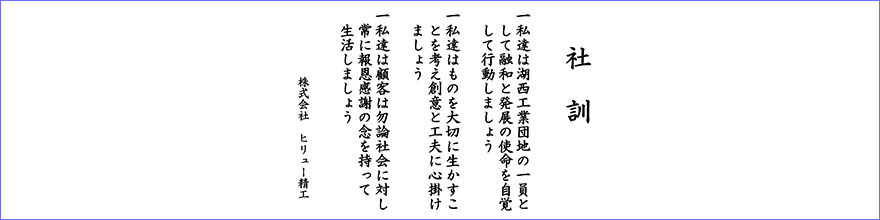 社訓
一私達は湖西工業団地の一員と
して融和と発展の使命を自覚
して行動しましょう
一私達はものを大切に生かすこ
とを考え創意と工夫に心掛け
ましょう
一私達は顧客は勿論社会に対し
常に報恩感謝の念を持って
生活しましょう
株式会社 ヒリュー精工